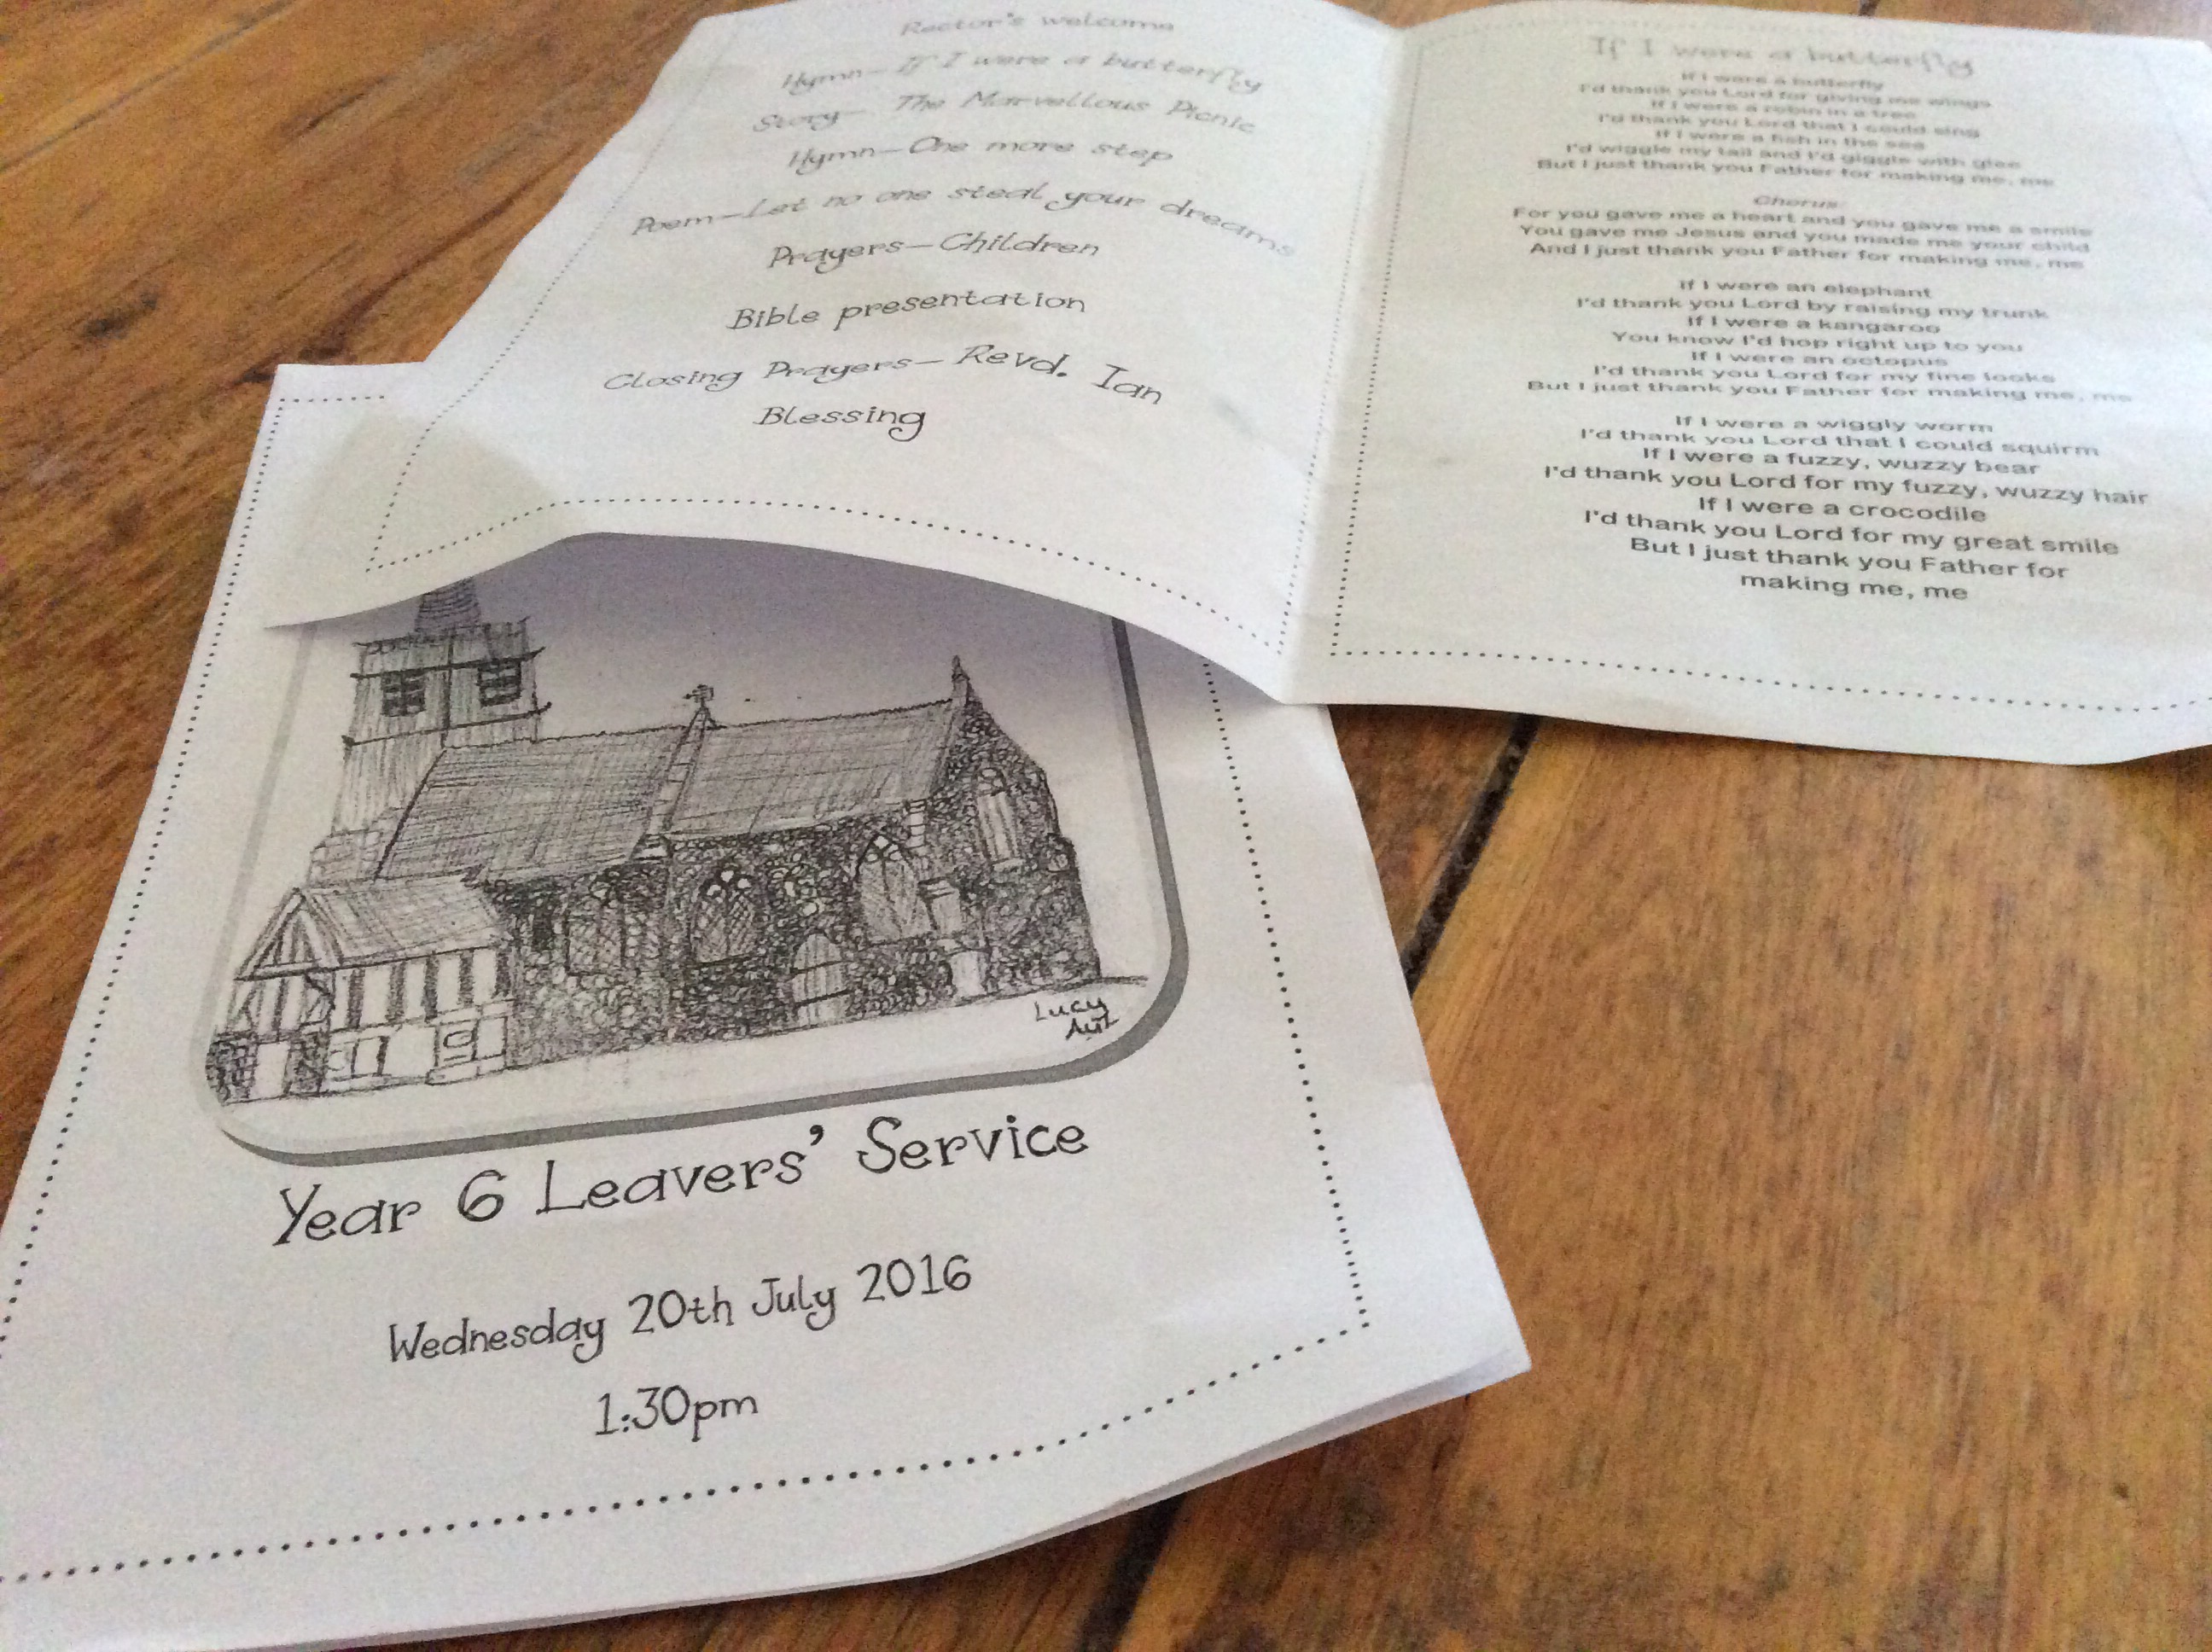 Rector's welcome
Hymn—If I were a butterfly
Story— The Marvellous Picnic
Hymn—One more step
Poem—Let no one steal your dreams
Prayers—Children
Bible presentation
Closing Prayers— Revd. Ian
Blessing
If I were a butterfly
If I were a butterfly
I'd thank you Lord for giving me wings
If I were a robin in a tree
I'd thank you Lord that I could sing
If I were a fish in the sea
I'd wiggle my tail and I'd giggle with glee
But I just thank you Father for making me, me
Chorus:
For you gave me a heart and you gave me a smile
You gave me Jesus and you made me your child
And I just thank you Father for making me, me
If I were an elephant
I'd thank you Lord by raising my trunk
If I were a kangaroo
You know I'd hop right up to you
If I were an octopus
I'd thank you Lord for my fine looks
But I just thank you Father for making me, me
If I were a wiggly worm
I'd thank you Lord that I could squirm
If I were a fuzzy, wuzzy bear
I'd thank you Lord for my fuzzy, wuzzy hair
If I were a crocodile
I'd thank you Lord for my great smile
But I just thank you Father for
making me, me
Lucy
Year 6 Leavers' Service
Wednesday 20th July 2016
1:30pm